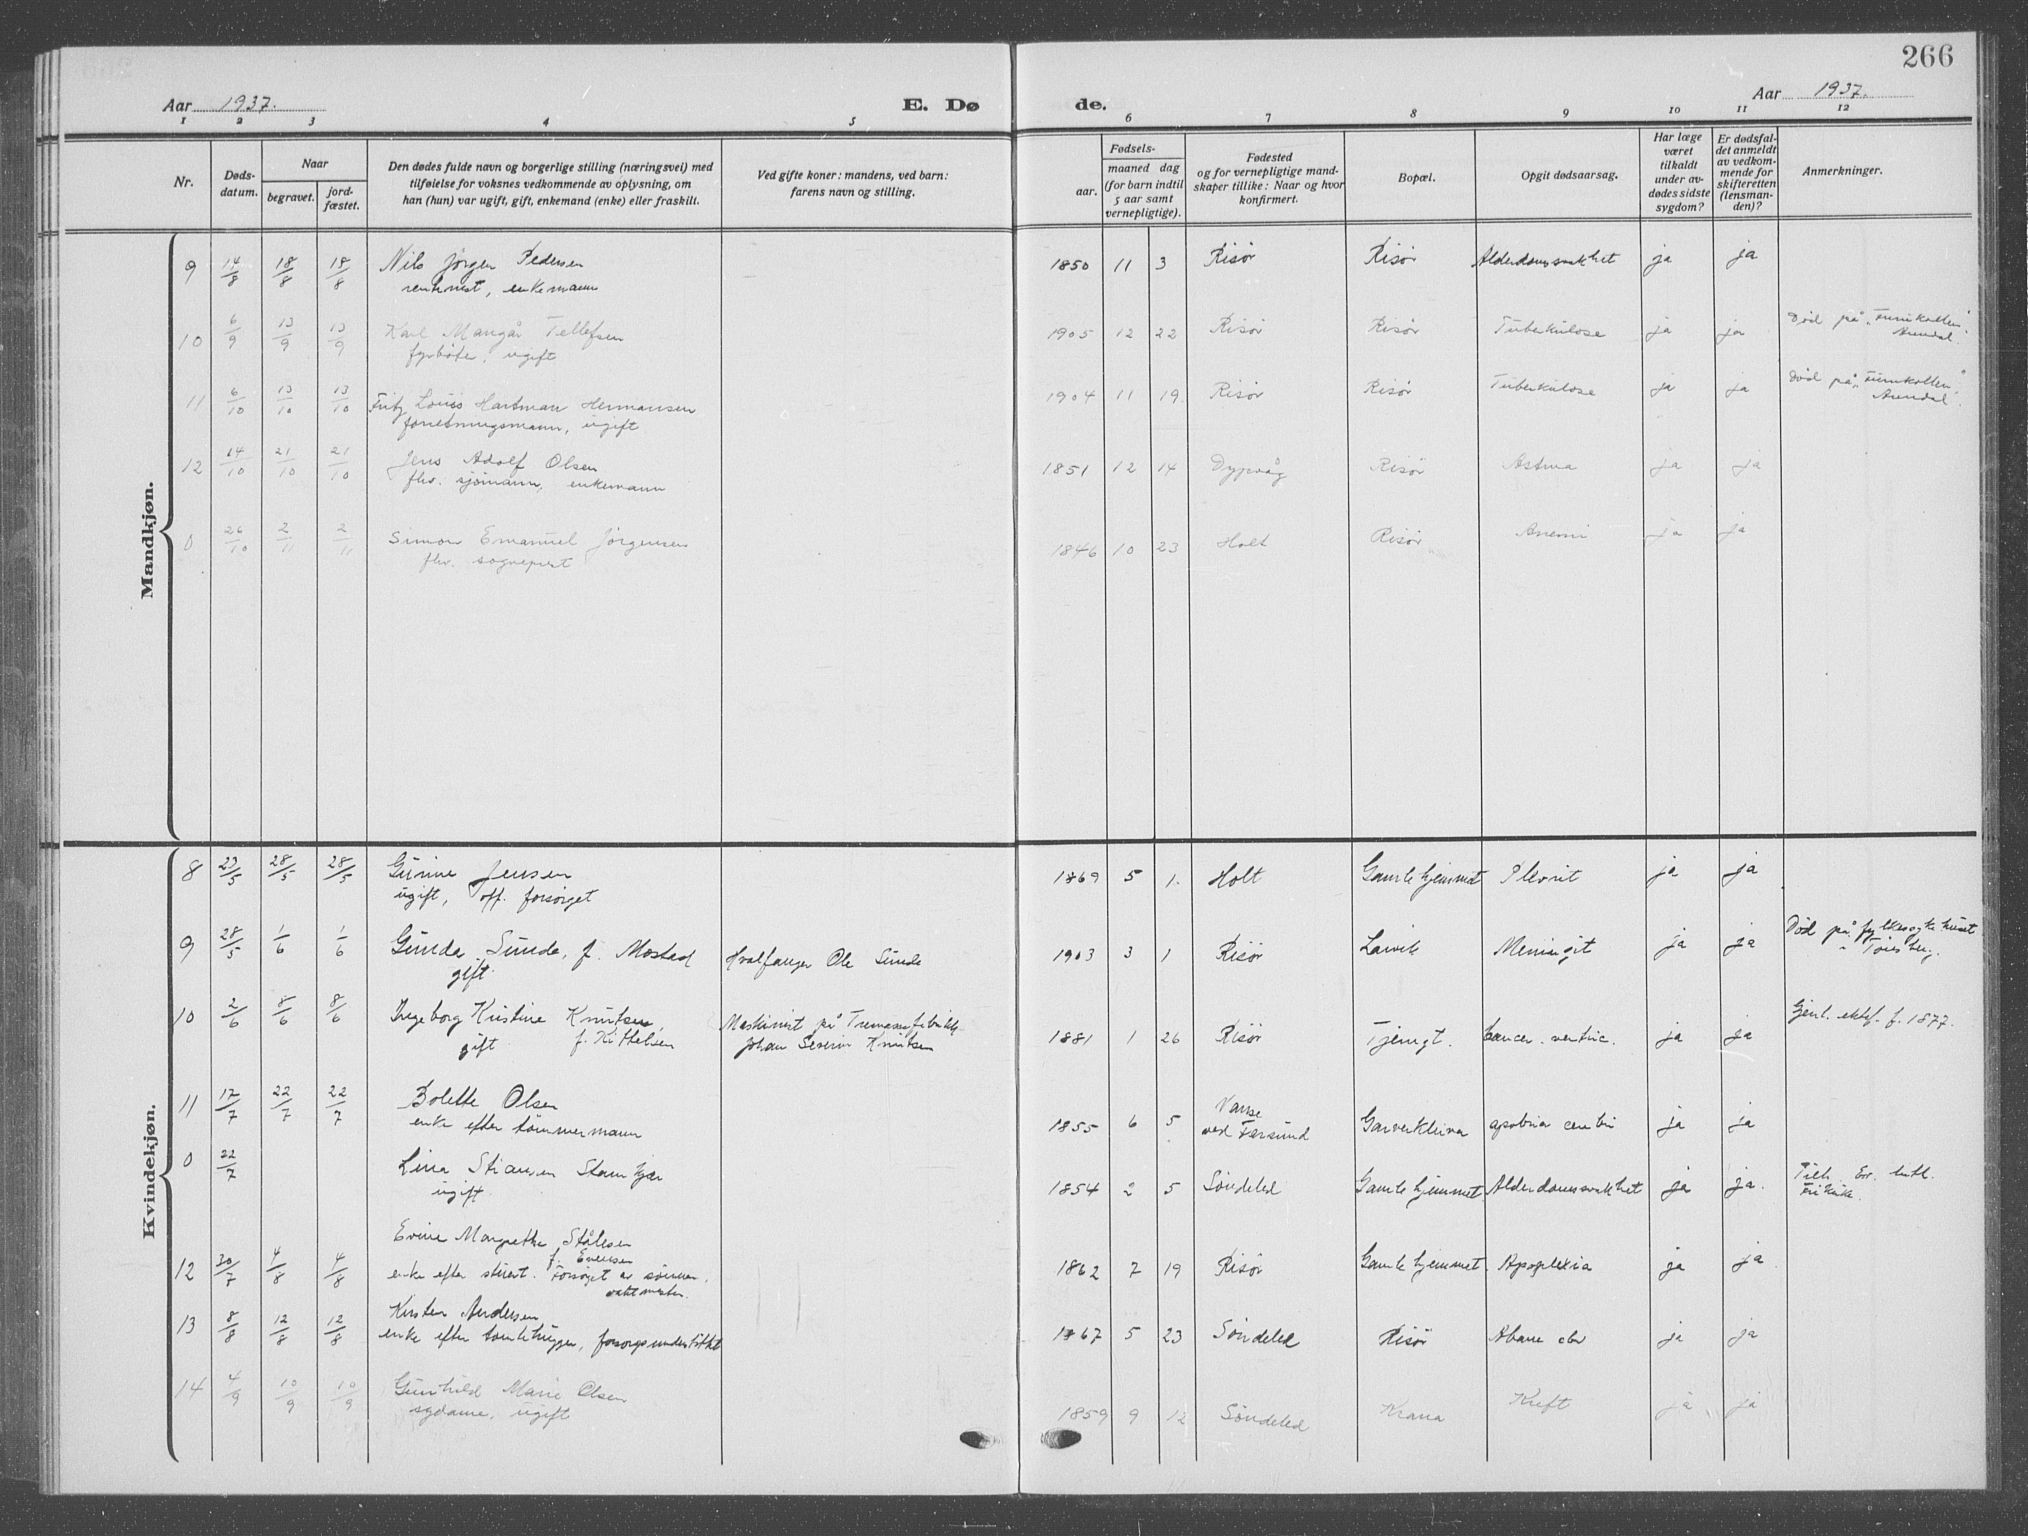 266
Aar 1937.
E. Dø
de.
Aar 1937.
1 2 3 4 5 6 7 8 9 10 11 12
Nr.
Døds-
datum.
Naar
begravet.
jord-
fæstet.
Den dødes fulde navn og borgerlige stilling (næringsvei) med
tilføielse for voksnes vedkommende av oplysning, om
han (hun) var ugift, gift, enkemand (enke) eller fraskilt.
Ved gifte koner: mandens, ved barn:
farens navn og stilling.
Fødsels-
aar.
maaned dag
(for barn indtil
5 aar samt
vernepligtige).
Fødested
og for vernepligtige mand-
skaper tillike: Naar og hvor
konfirmert.
Bopæl.
Opgit dødsaarsag.
Har læge
været
tilkaldt
under av-
dødes sidste
sygdom?
Er dødsfal-
det anmeldt
av vedkom-
mende for
skifteretten
(lensman-
den)?
Anmerkninger.
Mandkjøn.
9 14/8 18/8 18/8 Nils Jörgen Pedersen 1850 11 3 Risör Risör Alderdomssvakhet ja ja
rentenist, enkemann
10 6/9 13/9 13/9 Karl Mangår Tellefsen 1905 12 22 Risör Risör Tuberkulose ja ja Död på „Furukollen"
fyrböter, ugift Arendal.
11 6/10 13/10 13/10 Fritz Louis Hartman Hermansen 1904 11 19 Risör Risör Tuberkulose ja ja Död på „Furukollen"
forretningsmann, ugift Arendal.
12 14/10 21/10 21/10 Jens Adolf Olsen 1851 12 14 Dypvåg Risör Astma ja ja
fhv. sjömann, enkemann
0 26/10 2/11 2/11 Simon Emanuel Jörgensen 1846 10 23 Holt Risör Anemi ja ja
fhv. sogneprest
Kvindekjøn.
8 23/5 28/5 28/5 Gurine Jensen 1869 5 1. Holt Gamlehjemmet Plevrit ja ja
ugift, off. forsörget
9 28/5 1/6 1/6 Gunda Sunde, f. Mostad Hvalfanger Ole Sunde 1903 3 1 Risör Larvik Meningit ja ja Död på fylkessykehuset
gift. i Tönsberg.
10 2/6 8/6 8/6 Ingeborg Kristine Knutsen, Maskinist på Tremassefabrikk 1881 1 26 Risör Tjenngt. cancer. ventric. ja ja Gjenl. ektef. f. 1877.
gift f. Kittelsen Johan Severin Knutsen
11 17/7 22/7 22/7 Bolette Olsen 1855 6 5 Vanse
ved Farsund Garverkleiva ja ja
enke efter tömmermann
0 22/7 Lina Stiansen Stamkjær 1854 2 5 Söndeled Gamlehjemmet Alderdomssvakhet ja ja.
ugift.
Evine Margrethe Stålesen
f. Evensen
12 30/7 4/8 4/8 enke efter stuert. Forsörget av sönnen, 1862 7 19 Risör Gamlehjemmet Apoplexia ja ja
vaktmester.
Kirsten Andersen
13 8/8 12/8 12/8 enke efter tomtehugger, forsorgsunderstöttet 1867 5 23 Söndeled Risör ja ja
14 4/9 10/9 10/9 Gunhild Marie Olsen 1859 9 12 Söndeled Krana Kreft ja ja
sydame, ugift